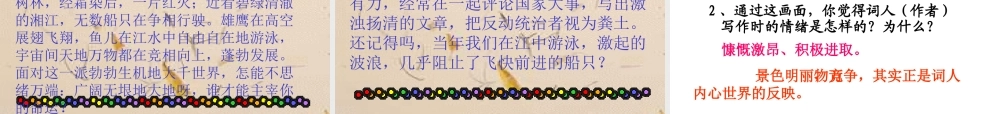 树林，经霜染后，一片红火；近看碧绿清澈
的湘江，无数船只在争相行驶。雄鹰在高空
展翅飞翔，鱼儿在江水中自由自在地游泳，
宇宙间天地万物都在竞相向上，蓬勃发展。
面对这一派勃勃生机地大千世界，怎能不思
绪万端：广阔无垠地大地呀，谁才能主宰你
的命运？
有力，经常在一起评论国家大事，写出激
浊扬清的文章，把反动统治者视为粪土。
还记得吗，当年我们在江中游泳，激起的
波浪，几乎阻止了飞快前进的船只？
2、通过这画面，你觉得词人（作者）
写作时的情绪是怎样的？为什么？
慷慨激昂、积极进取。
景色明丽物竞争，其实正是词人
内心世界的反映。